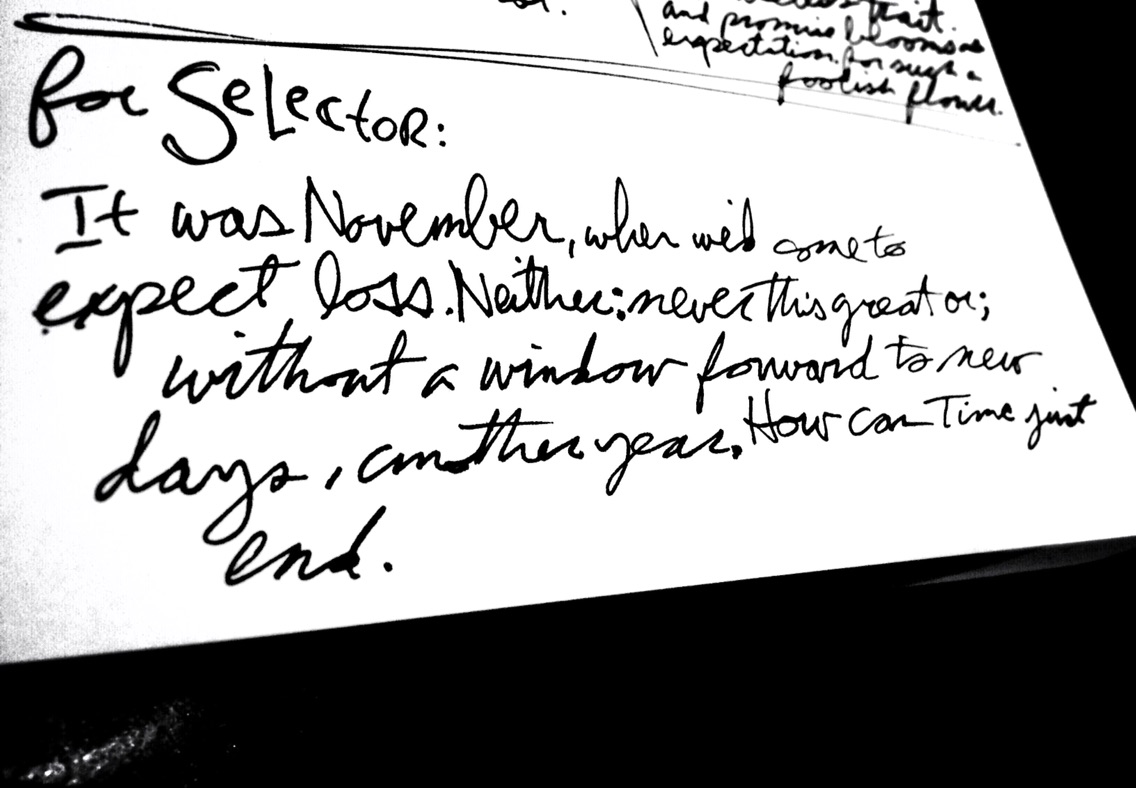 and promise blooms as
expectation for such a
foolish flower.
for Selector:
It was November, when we'd come to
expect loss. Neither: never this great or;
without a window forward to new
days, another year. How can Time just
end.